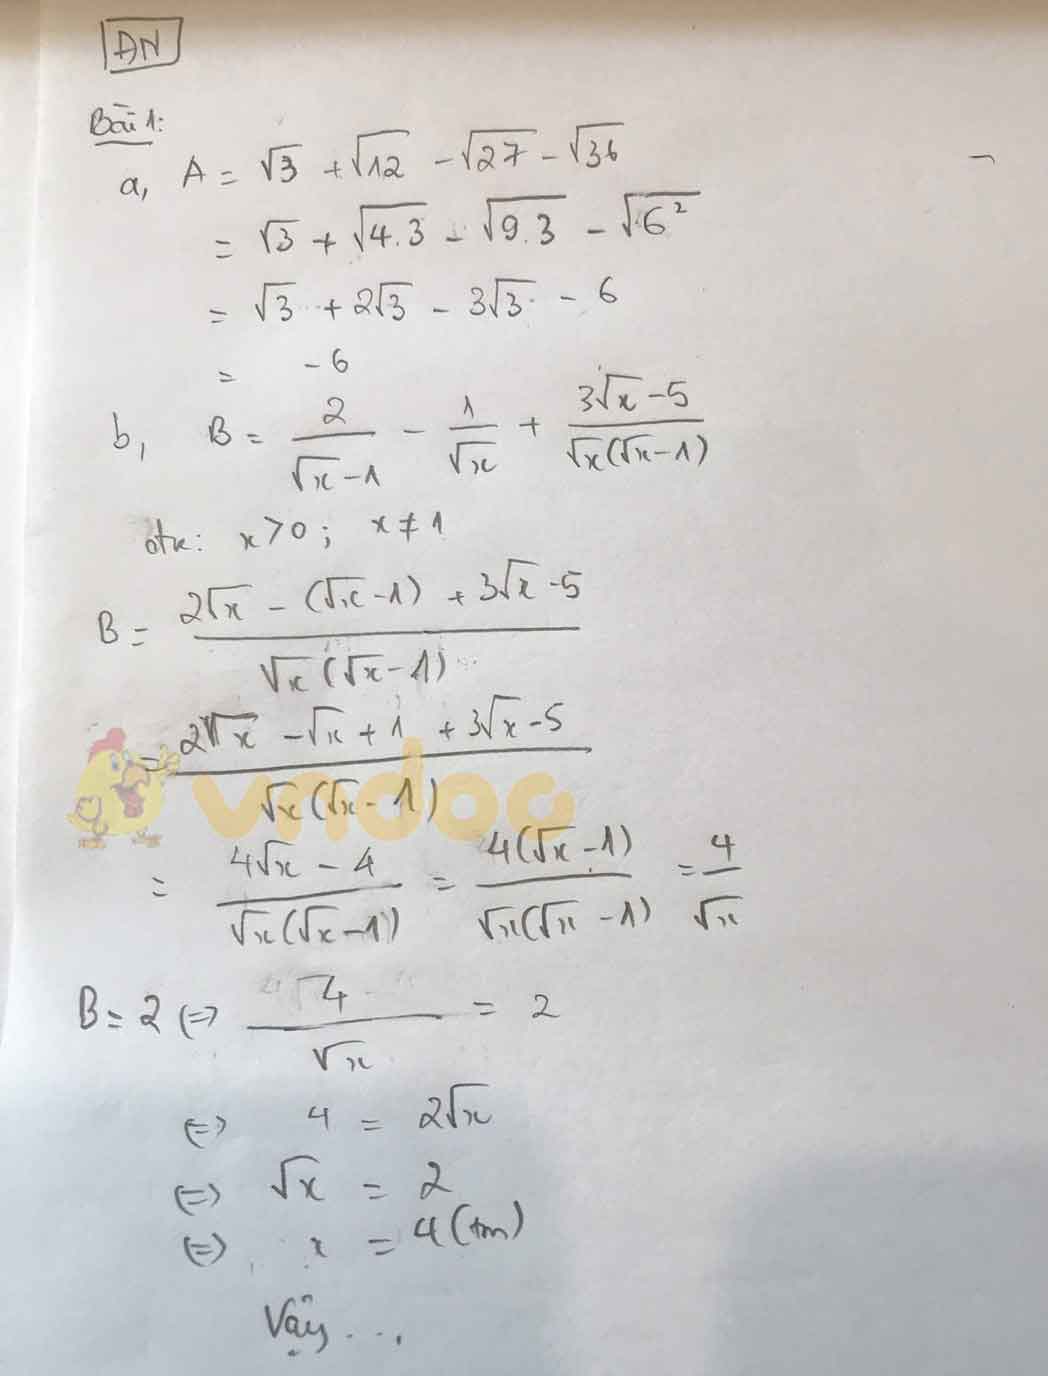 ĐN
Bài 1:
a, A = √3 + √12 - √27 - √36
= √3 + √4.3 - √9.3 - √6²
= √3 + 2√3 - 3√3 - 6
= -6
b, B = 2/(√x-1) - 1/√x + (3√x-5)/(√x(√x-1))
đk: x>0; x≠1
B = (2√x - (√x-1) + 3√x-5)/(√x(√x-1))
= (2√x - √x + 1 + 3√x-5)/(√x(√x-1))
vndoc
= (4√x - 4)/(√x(√x-1)) = 4(√x-1)/(√x(√x-1)) = 4/√x
B = 2 (=) 4/√x = 2
(=) 4 = 2√x
(=) √x = 2
(=) x = 4 (tm)
Vậy ....